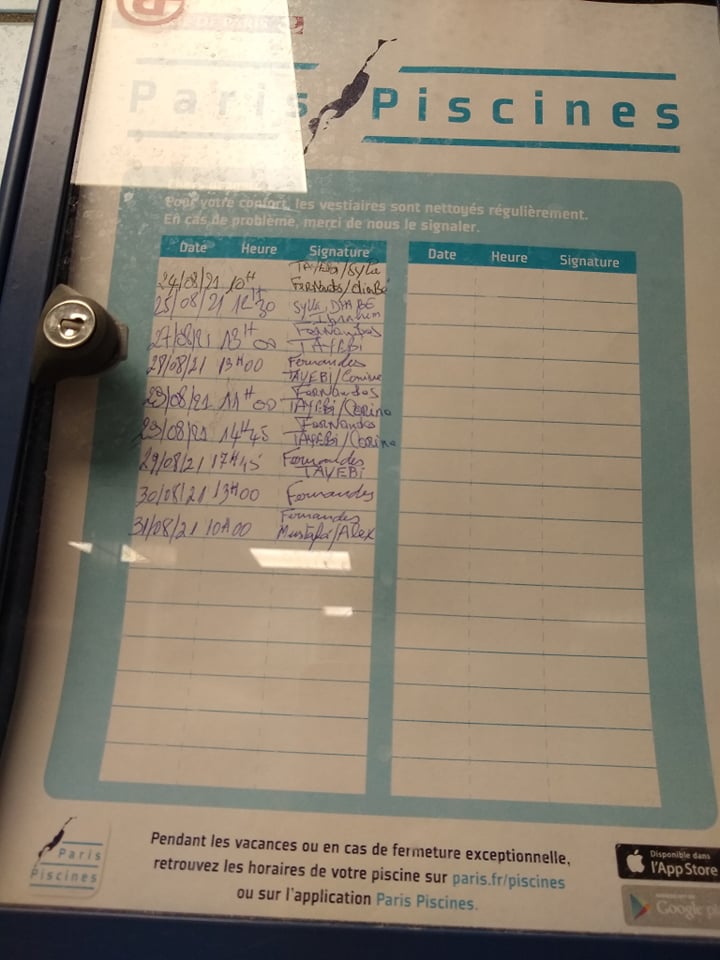 DE PARIS
Paris Piscines
Pour votre confort, les vestiaires sont nettoyés régulièrement.
En cas de problème, merci de nous le signaler.
Date Heure Signature
Date Heure Signature
24/08/21 10H Fernandes/diabé
25/08/21 12H30 Sylla, DIABE
27/08/21 13H00 Fernandes
TAYEBI
28/08/21 13H00 Fernandes
TAYEBI/Corine
29/08/21 11H00 Fernandes
TAYEBI/Corine
29/08/21 14H45 Fernandes
TAYEBI/Corine
29/08/21 17H45 Fernandes
TAYEBI
30/08/21 13H00 Fernandes
31/08/21 10H00 Fernandes
Mustafa/Alex
Paris
Piscines
Pendant les vacances ou en cas de fermeture exceptionnelle,
retrouvez les horaires de votre piscine sur paris.fr/piscines
ou sur l'application Paris Piscines.
Disponible dans
l'App Store
Google